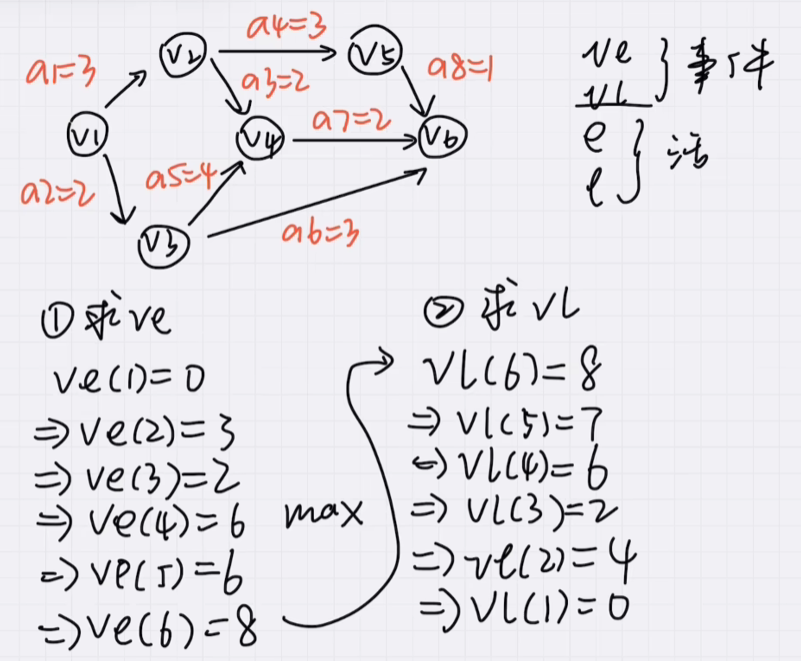 a4=3
V2
V5
a1=3
a3=2
a8=1
V1
V4
a7=2
V6
a2=2
a5=4
V3
a6=3
ve
vl
事件
e
l
活
① 求ve
ve(1)=0
⇒ ve(2)=3
⇒ ve(3)=2
⇒ ve(4)=6
⇒ ve(5)=6
⇒ ve(6)=8
max
② 求 vl
vl(6)=8
⇒ vl(5)=7
⇒ vl(4)=6
⇒ vl(3)=2
⇒ vl(2)=4
⇒ vl(1)=0